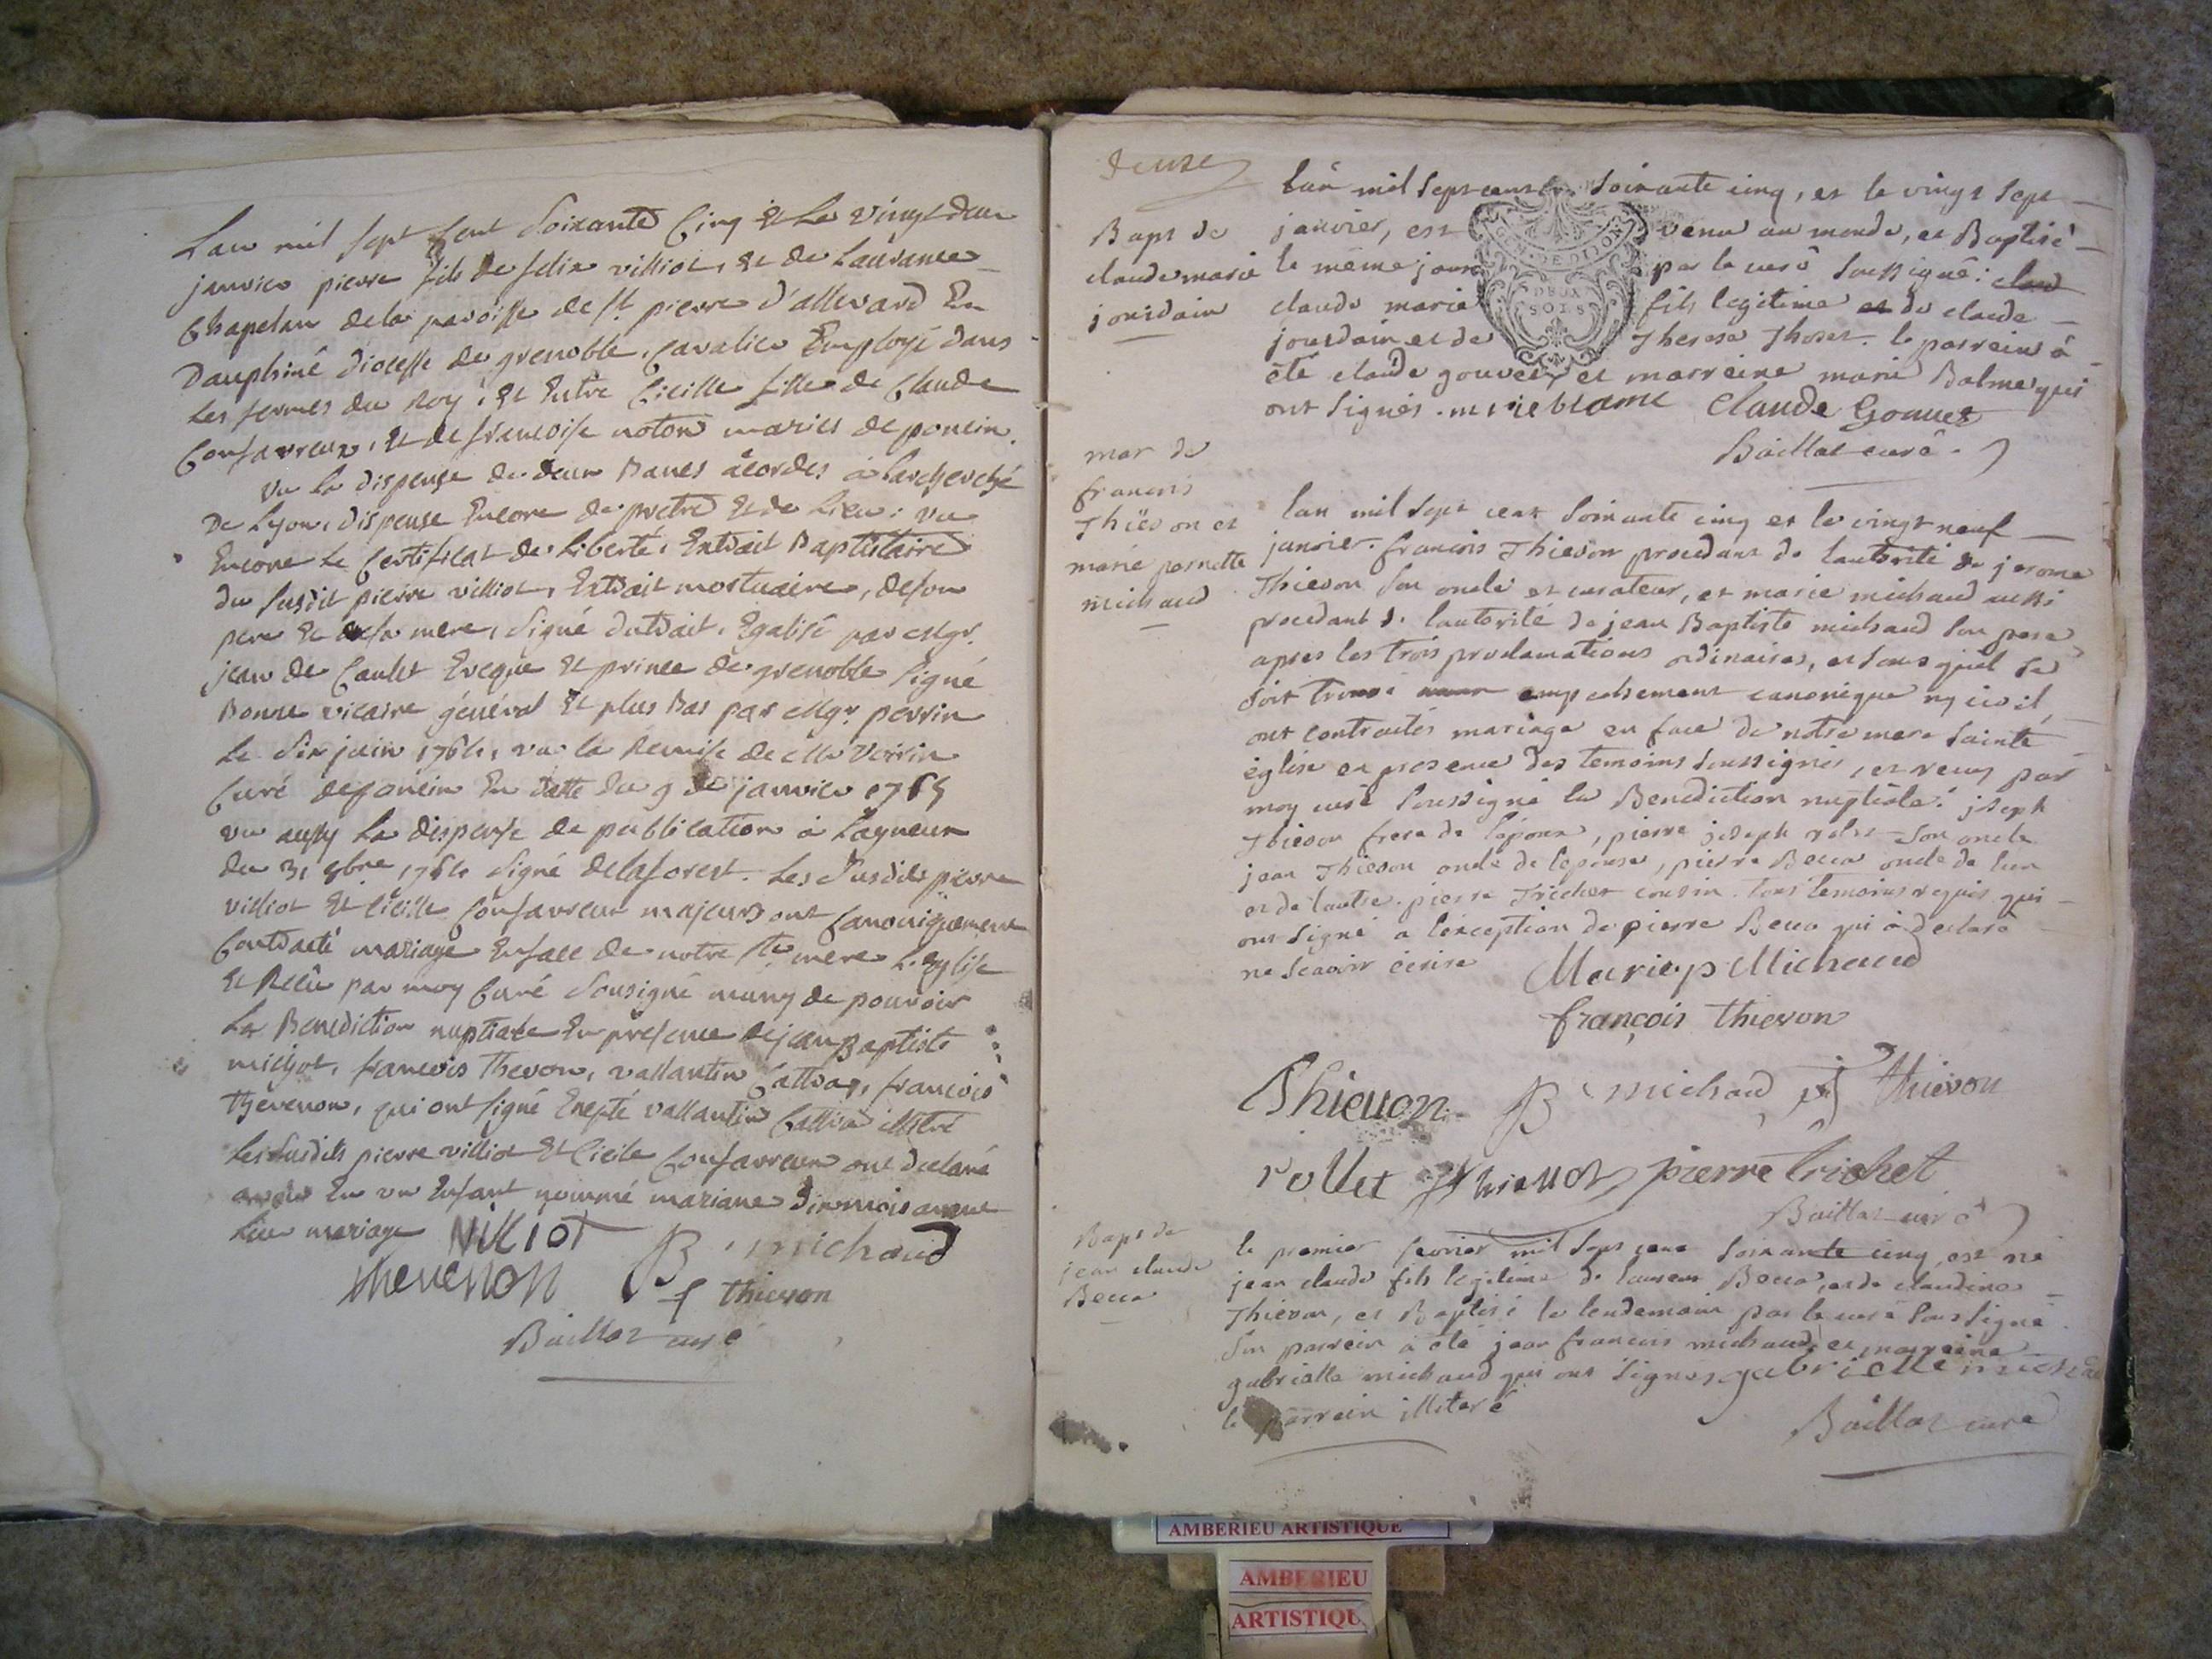 Lan mil sept Cent Soixante Cinq Et Le vingt deux
janvier pierre fils de felix villiot, Et de Laurance
Chapelan dela paroisse de st. pierre d'allevard En
Dauphiné diocesse de grenoble, Cavalier Employé dans
les fermes du Roy; Et Entre Cicille fille de Claude
Confavreux, Et de francoise noton mariés de poncin.
Vu La dispense de deux Bancs acordés à Larchevché
De Lyon, dispense Encore de pretre Et de Lieu; vu
Encore Le Certificat de Liberté, Extrait Baptistaire
du susdit pierre villiot, Extrait mortuaire, de son
pere Et de sa mere, signé dutrait, Egalisé par Mgr.
jean de Caulet Eveque Et prince de grenoble signé
Bonne vicaire général Et plus Bas par Mgr. perrin
Le six juin 1764, vu la Remise de Mr Voisin
Curé de poncin En datte du 9 de janvier 1765
vu aussy La dispense de publication à Lagneux
du 31 8bre 1764 signé delaforest. Les susdits pierre
villiot Et Cicille Confavreux majeurs ont Canoniquement
Contracté mariage Enface de notre ste mere L'Eglise
Et Recû par moy Curé sousigné muny de pouvoir
La Benediction nuptiale En presence de jean Baptiste
michot, francois Thevon, vallantin Cattra, francois
Thevenon, qui ont signé Excpté vallantin Cattra illitré
Les susdits pierre villiot Et Cicile Confavreux ont declaré
Eu un Enfant nommé mariane dix mois avant
Leur mariage Villiot B michaud
thevenon f thievon
Baillat curé
deuxe
Bapt de
claude marie
jourdain
Lan mil sept cent soixante cinq, et le vingt sept
janvier, est venu au monde, et Baptisé
le même jour par le curé soussigné: claud
claude marie fils legitime et de claude
jourdain et de Therese Thoset. le parrein à
été claude gouvet et marreine marie Balme qui
ont signés. marie blame Claude Gouuet
Baillat curé
GEN. DE DIJON
DEUX
SOLS
mar de
francois
Thiévon et
marie pernette
michaud
lan mil sept cent soixante cinq et le vingt neuf
janvier. francois Thievon procedant de lautorité de jerome
Thievon son oncle et curateur, et marie michaud aussi
procedant de lautorité de jean Baptiste michaud son pere
apres les trois proclamations ordinaires, et sans quil se
soit trouvé empechement canonique ny civil,
ont contractés mariage en face de notre mere sainte
église en presence des temoins soussignés, et reçus par
moy curé soussigné la Benediction nuptiale: joseph
Thievon frere de lepoux, pierre joseph rolet son oncle
jean Thievon oncle de lepouse, pierre Becca oncle de lun
et de lautre. pierre Trichet cousin. tous temoins requis qui
ont signé a l'exception de pierre Becca qui à declaré
ne scavoir écrire Marie p Michaud
françois thievon
Thieuon B michaud j thiévon
rollet Thieuon pierre trichet
Baillat curé
Bapt de
jean claude
Becca
le premier fevrier mil sept cent soixante cinq est né
jean claude fils legitime de laurent Becca, et de claudine
Thievon, et Baptisé le lendemain par le curé soussigné
son parrein à été jean francois michaud et marreine
gabrielle michaud qui ont signés gabrielle michau
le parrein illiteré Baillat curé
AMBERIEU ARTISTIQUE
AMBERIEU
ARTISTIQU